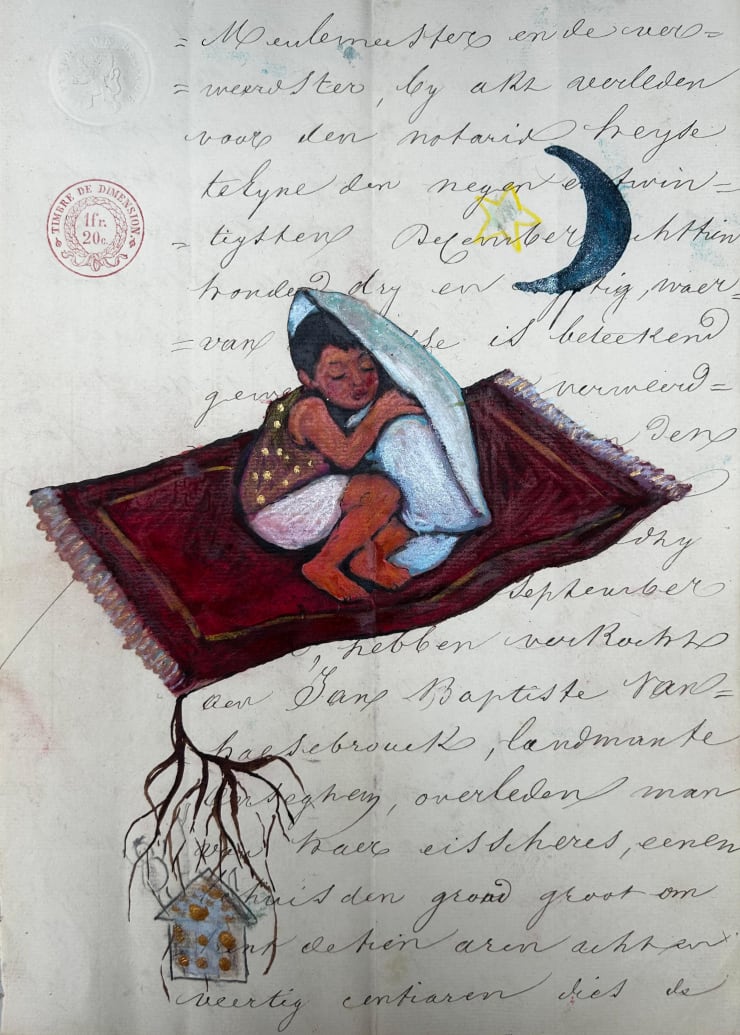 = Meulemeester en de ver=
= weerdster, by akt verleden
voor den notaris heyse
te Eyne den negen en twin=
TIMBRE DE DIMENSION
1fr.
20c.
= tigsten December achttien
honderd dry en tig, waer=
= van is beteekend
gewe verweerd=
den
September
hebben verkocht
aen Jan Baptiste Van=
haesebrouck, landman te
erseghem, overleden man
van haer eisscheres, eenen
huis den grond groot om=
ent detien aren acht en
veertig centiaren dict de